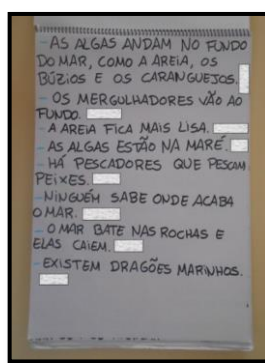 - AS ALGAS ANDAM NO FUNDO
DO MAR, COMO A AREIA, OS
BÚZIOS E OS CARANGUEJOS.
- OS MERGULHADORES VÃO AO
FUNDO.
- A AREIA FICA MAIS LISA.
- AS ALGAS ESTÃO NA MARÉ.
- HÁ PESCADORES QUE PESCAM
PEIXES.
- NINGUÉM SABE ONDE ACABA
O MAR.
- O MAR BATE NAS ROCHAS E
ELAS CAIEM.
- EXISTEM DRAGÕES MARINHOS.